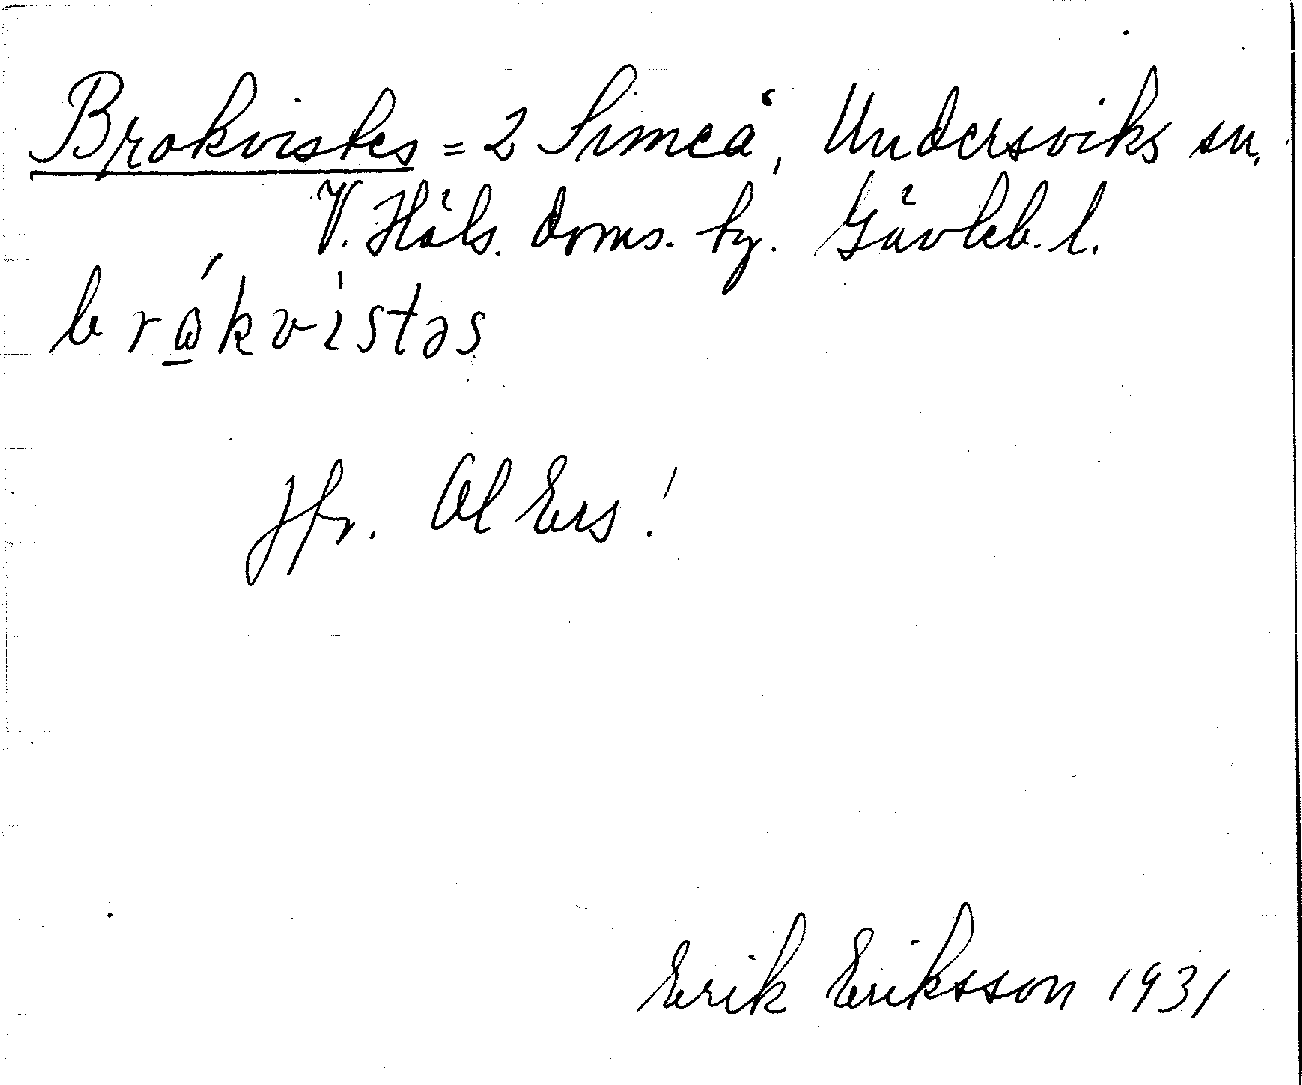 Brokvistes = 2 Simeå, Undersviks sn.
V. Häls. doms. hg. Gävleb. l.
brώ̲kvìstəs
Jfr. Ol Ers!
Erik Eriksson 1931